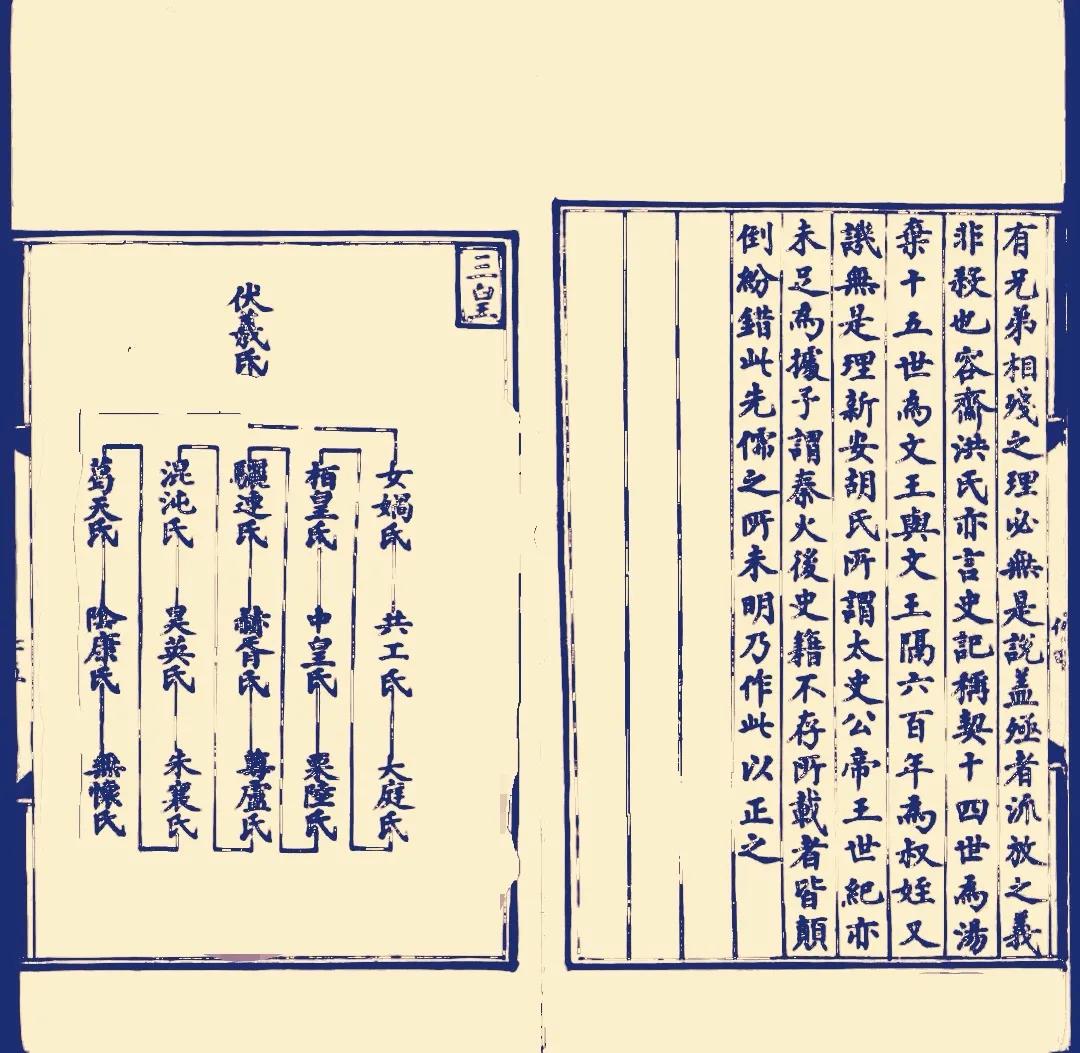 有兄弟相殘之理必無是說盖殛者流放之義
非殺也容齋洪氏亦言史記稱契十四世為湯
棄十五世為文王與文王隔六百年為叔姪又
譏無是理新安胡氏所謂太史公帝王世紀亦
未足為據予謂秦火後史籍不存所載者皆顛
倒紛錯此先儒之所未明乃作此以正之
三皇
伏羲氏
女媧氏
共工氏
大庭氏
栢皇氏
中皇氏
栗陸氏
驪連氏
赫胥氏
尊盧氏
混沌氏
昊英氏
朱襄氏
葛天氏
陰康氏
無懷氏